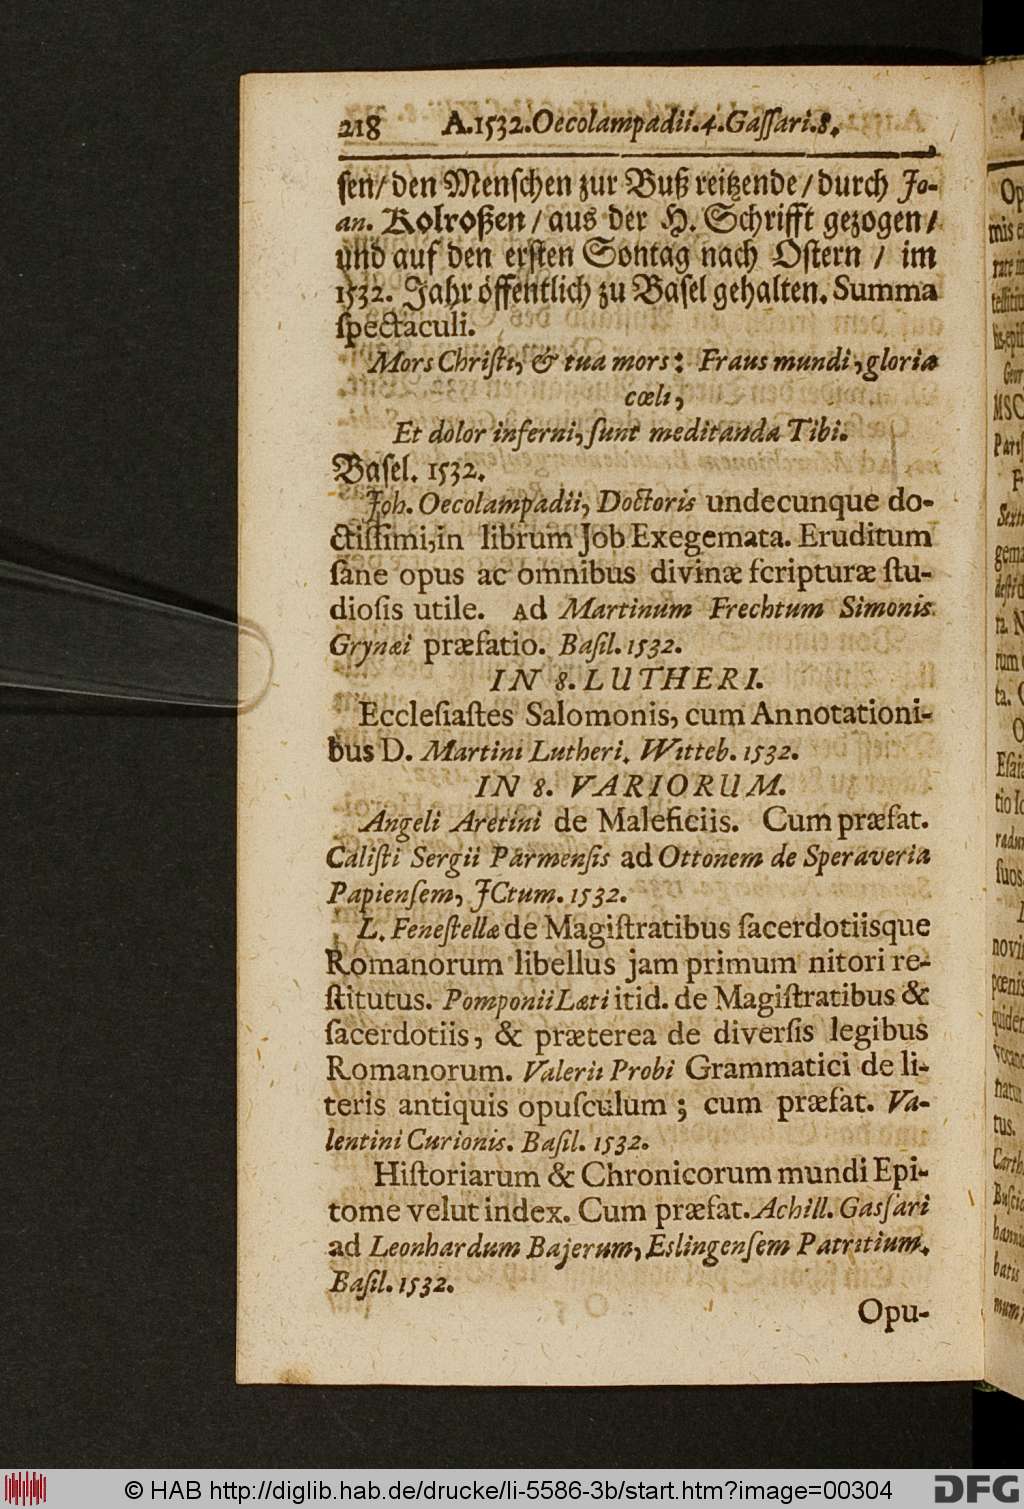 218 A.1532.Oecolampadii.4.Gaſſari.8.
ſen/ den Menſchen zur Buß reitzende/ durch Jo-
an. Kolroßen/ aus der H. Schrifft gezogen/
und auf den erſten Sontag nach Oſtern/ im
1532. Jahr öffentlich zu Baſel gehalten. Summa
ſpectaculi.
Mors Chriſti, & tua mors: Fraus mundi, gloria
cœli,
Et dolor inferni, ſunt meditanda Tibi.
Baſel. 1532.
Joh. Oecolampadii, Doctoris undecunque do-
ctiſſimi, in librum Job Exegemata. Eruditum
ſane opus ac omnibus divinæ ſcripturæ ſtu-
dioſis utile. Ad Martinum Frechtum Simonis
Grynæi præfatio. Baſil. 1532.
IN 8. LUTHERI.
Eccleſiaſtes Salomonis, cum Annotationi-
bus D. Martini Lutheri. Witteb. 1532.
IN 8. VARIORUM.
Angeli Aretini de Maleficiis. Cum præfat.
Caliſti Sergii Parmenſis ad Ottonem de Speraveria
Papienſem, JCtum. 1532.
L. Feneſtellæ de Magiſtratibus ſacerdotiisque
Romanorum libellus jam primum nitori re-
ſtitutus. Pomponii Læti itid. de Magiſtratibus &
ſacerdotiis, & præterea de diverſis legibus
Romanorum. Valerii Probi Grammatici de li-
teris antiquis opuſculum; cum præfat. Va-
lentini Curionis. Baſil. 1532.
Hiſtoriarum & Chronicorum mundi Epi-
tome velut index. Cum præfat. Achill. Gaſſari
ad Leonhardum Bajerum, Eslingenſem Patritium.
Baſil. 1532.
Opu-
© HAB http://diglib.hab.de/drucke/li-5586-3b/start.htm?image=00304
DFG